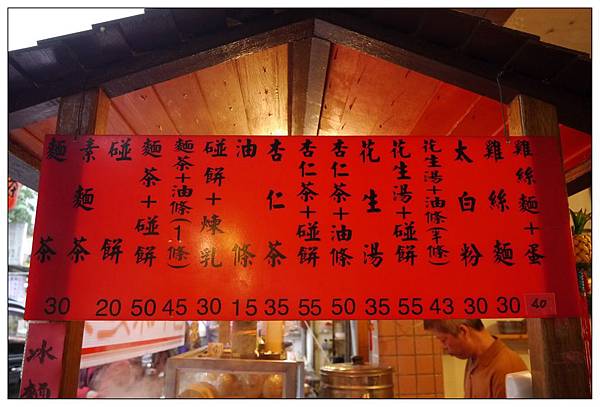 雞絲麵+蛋 40
雞絲麵 30
太白粉 30
花生湯+油條(半條) 43
花生湯+碰餅 55
花生湯 35
杏仁茶+油條 50
杏仁茶+碰餅 55
杏仁茶 35
油條 15
碰餅+煉乳 30
麵茶+油條(1條) 45
麵茶+碰餅 50
碰餅 20
素麵茶
麵茶 30
冰